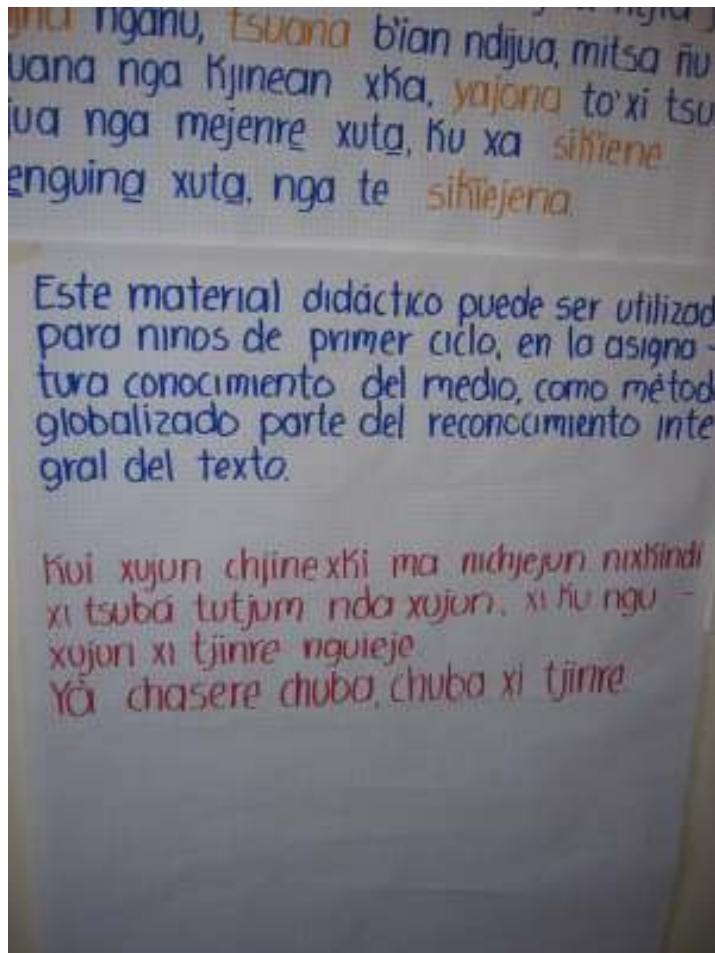 nganu, tsuana b'ian ndijua, mitsa ñu
uana nga kjinean xka, yajona to'xi tsu
jua nga mejenre xuta, ku xa sikïene
enguina xuta, nga te sikïejena.
Este material didáctico puede ser utilizad
para ninos de primer ciclo, en la asigna-
tura conocimiento del medio, como métod
globalizado parte del reconocimiento inte
gral del texto.
Kui xujun chjinexki ma nichjejun nixkindi
xi tsubá tutjum nda xujun, xi ku ngu -
xujun xi tjinre nguieje
Yá chasere chuba, chuba xi tjinre.